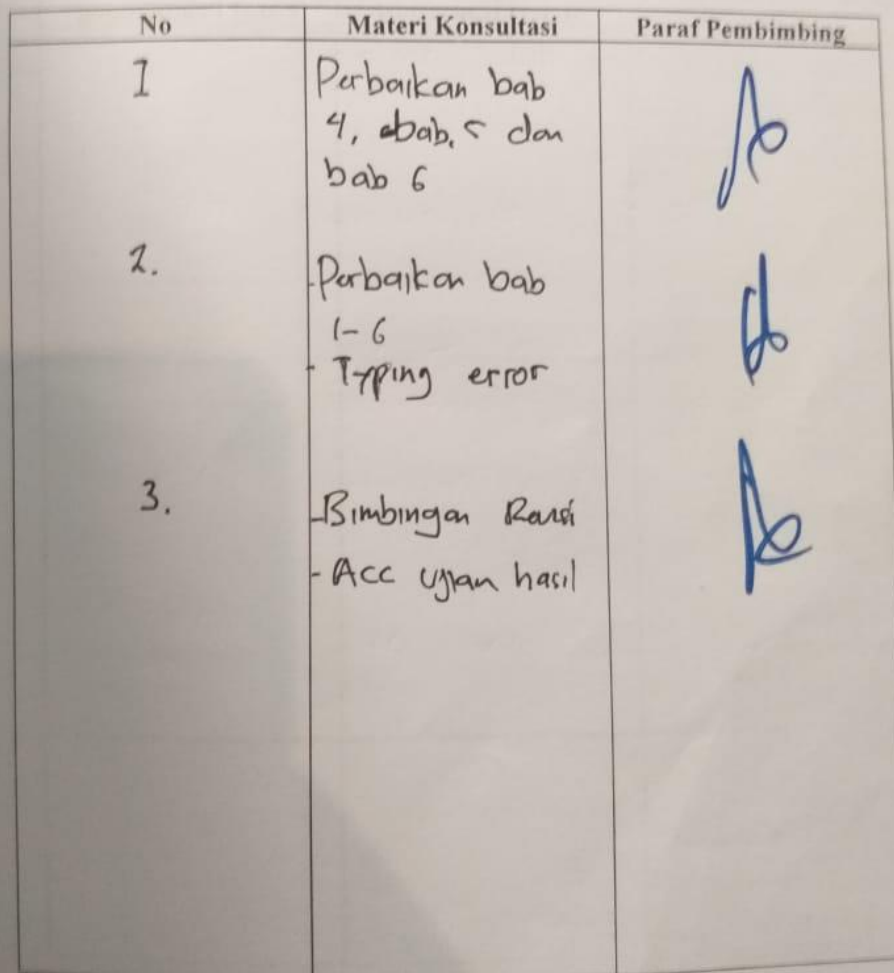 No Materi Konsultasi Paraf Pembimbing
1 Perbaikan bab
4, bab, 5 dan
bab 6
2. - Perbaikan bab
1-6
- Typing error
3. - Bimbingan
- Acc ujian hasil